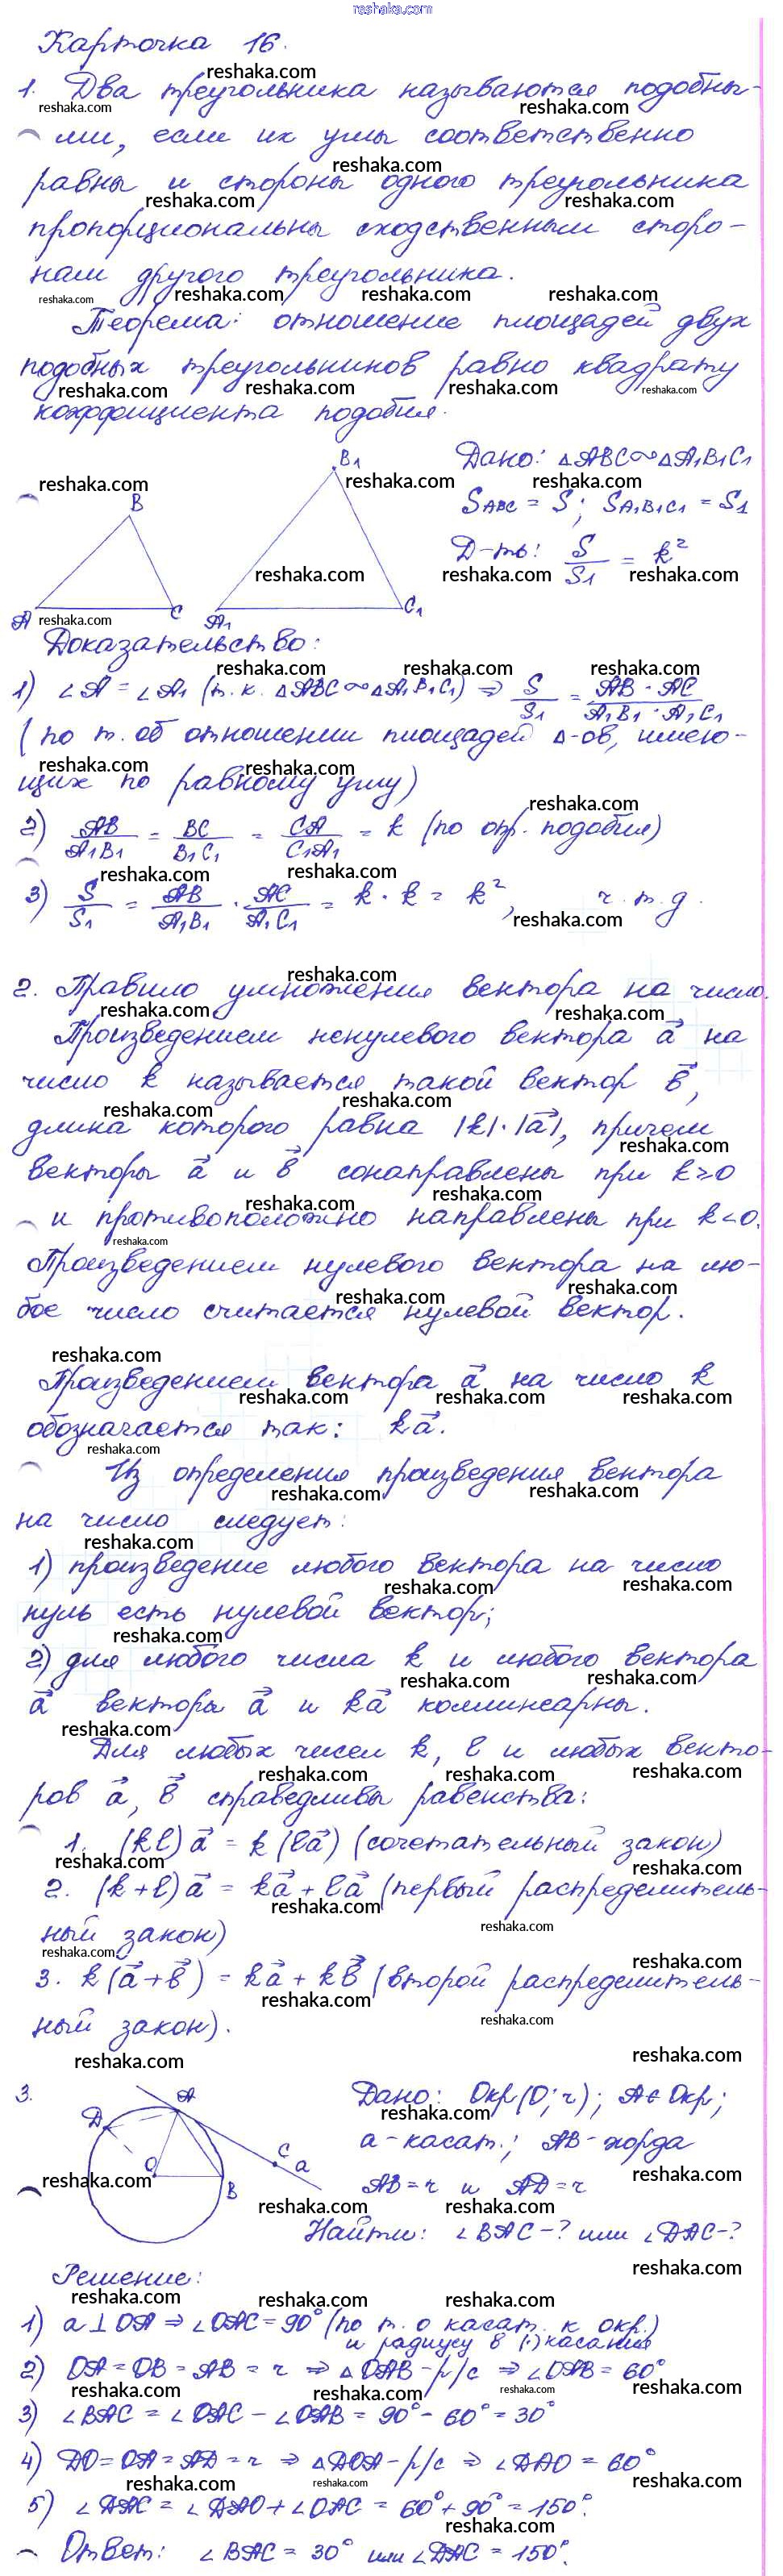 reshaka.com
Карточка 16.
1. Два треугольника называются подобны-
ми, если их углы соответственно
равны и стороны одного треугольника
пропорциональны сходственным сторо-
нам другого треугольника.
Теорема: отношение площадей двух
подобных треугольников равно квадрату
коэффициента подобия.
Дано: △ABC∾△A₁B₁C₁
S_ABC = S; S_A₁B₁C₁ = S₁
Д-ть: S/S₁ = k²
B
B₁
A
C
A₁
C₁
Доказательство:
1) ∠A = ∠A₁ (т.к. △ABC∾△A₁B₁C₁) ⇒ S/S₁ = AB · AC / A₁B₁ · A₁C₁
(по т. об отношении площадей △-ов, имею-
щих по равному углу)
2) AB/A₁B₁ = BC/B₁C₁ = CA/C₁A₁ = k (по опр. подобия)
3) S/S₁ = AB/A₁B₁ · AC/A₁C₁ = k · k = k², ч.т.д.
2. Правило умножения вектора на число.
Произведением ненулевого вектора a⃗ на
число k называется такой вектор b⃗,
длина которого равна |k|·|a⃗|, причем
векторы a⃗ и b⃗ сонаправлены при k≥0
и противоположно направлены при k<0.
Произведением нулевого вектора на лю-
бое число считается нулевой вектор.
Произведением вектора a⃗ на число k
обозначается так: ka⃗.
Из определения произведения вектора
на число следует:
1) произведение любого вектора на число
нуль есть нулевой вектор;
2) для любого числа k и любого вектора
a⃗ векторы a⃗ и ka⃗ коллинеарны.
Для любых чисел k, l и любых векто-
ров a⃗, b⃗ справедливы равенства:
1. (kl)a⃗ = k(la⃗) (сочетательный закон)
2. (k+l)a⃗ = ka⃗ + la⃗ (первый распределитель-
ный закон)
3. k(a⃗+b⃗) = ka⃗ + kb⃗ (второй распределитель-
ный закон).
3.
Дано: Окр(O; r); A∈Окр;
a-касат.; AB-хорда
AB=r и AD=r
Найти: ∠BAC-? или ∠DAC-?
A
D
O
C
a
B
Решение:
1) a⊥OA ⇒ ∠OAC = 90° (по т. о касат. к окр.)
и радиусу в (·) касания
2) OA = OB = AB = r ⇒ △OAB - р/с ⇒ ∠OAB = 60°
3) ∠BAC = ∠OAC - ∠OAB = 90° - 60° = 30°
4) DO = OA = AD = r ⇒ △DOA - р/с ⇒ ∠DAO = 60°
5) ∠DAC = ∠DAO + ∠OAC = 60° + 90° = 150°.
Ответ: ∠BAC = 30° или ∠DAC = 150°.